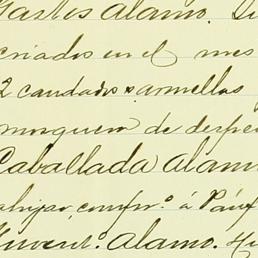 Gastos Alamo.
criados en el mes
2 candados & armellas
mosquero de despe
Caballada Alam
ahijar, confr.º á Pár
Invent.º Alamo.